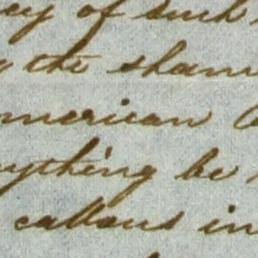 of such
the sham
merican
ything be
callous in